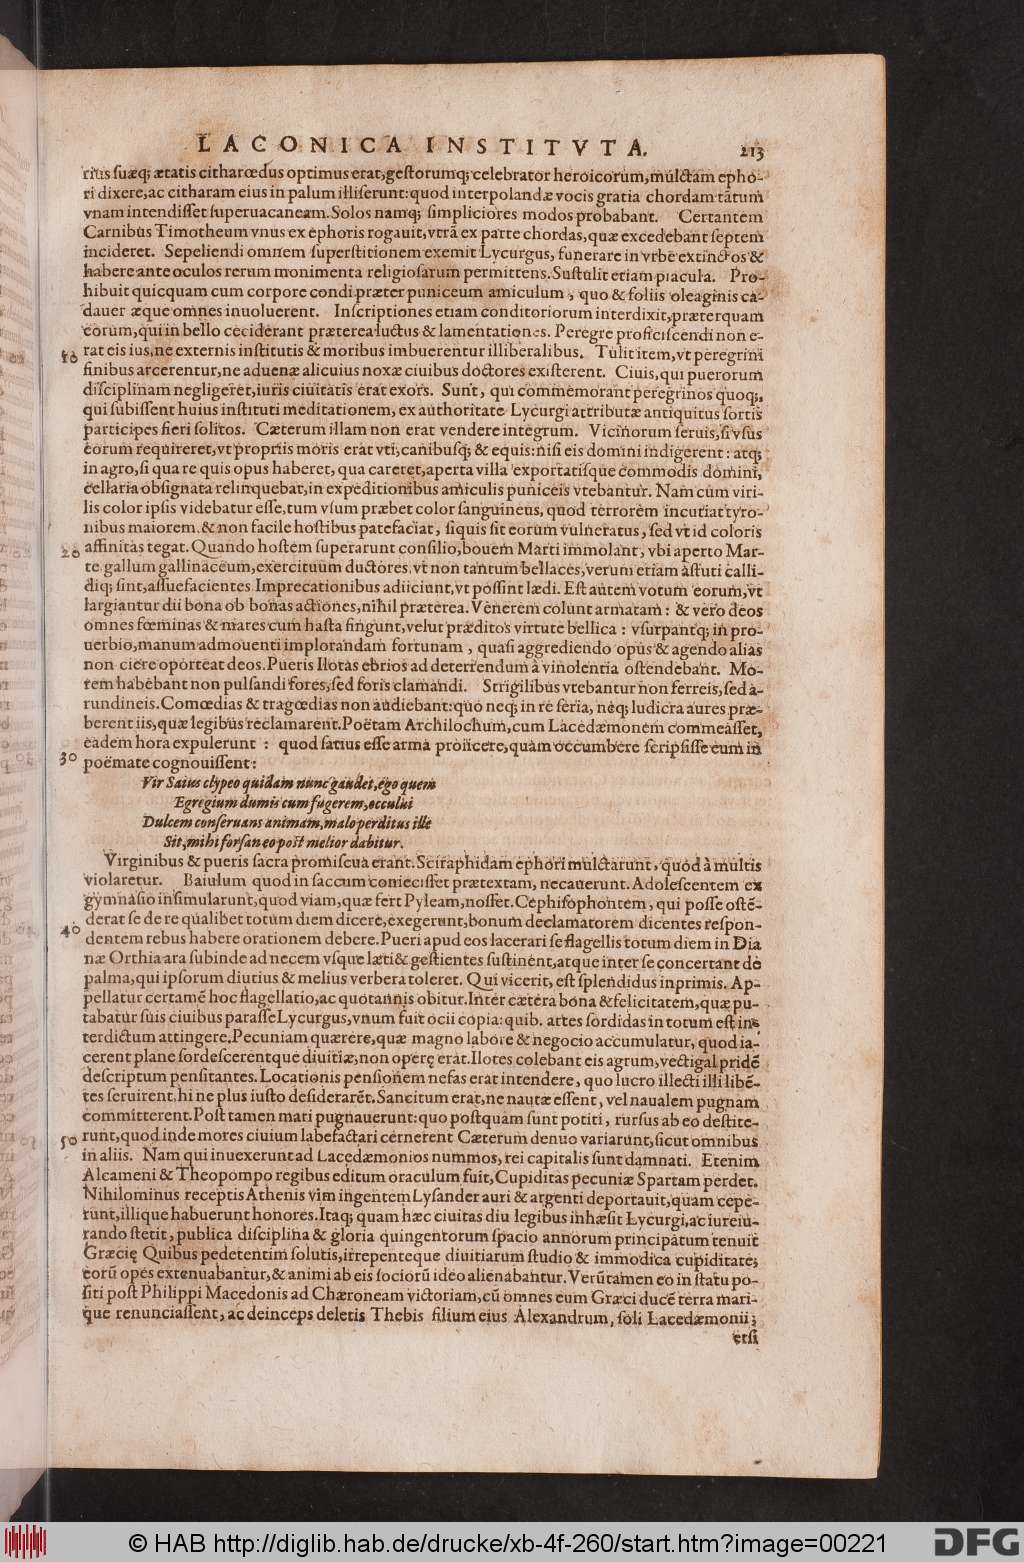 LACONICA INSTITVTA. 213
rius suæq; ætatis citharœdus optimus erat, gestorumq; celebrator heroicorum, mulctam epho-
ri dixere, ac citharam eius in palum illiserunt: quod interpolandæ vocis gratia chordam tātum
vnam intendisset superuacaneam. Solos namq; simpliciores modos probabant. Certantem
Carnibus Timotheum vnus ex ephoris rogauit, vtrā ex parte chordas, quæ excedebant septem
incideret. Sepeliendi omnem superstitionem exemit Lycurgus, funerare in vrbe extinctos &
habere ante oculos rerum monimenta religiosarum permittens. Sustulit etiam piacula. Pro-
hibuit quicquam cum corpore condi præter puniceum amiculum, quo & foliis oleaginis ca-
dauer æque omnes inuoluerent. Inscriptiones etiam conditoriorum interdixit, præterquam
eorum, qui in bello ceciderant præterea luctus & lamentationes. Peregre proficiscendi non e-
10 rat eis ius, ne externis institutis & moribus imbuerentur illiberalibus. Tulit item, vt peregrini
finibus arcerentur, ne aduenæ alicuius noxæ ciuibus doctores existerent. Ciuis, qui puerorum
disciplinam negligeret, iuris ciuitatis erat exors. Sunt, qui commemorant peregrinos quoq;,
qui subissent huius instituti meditationem, ex authoritate Lycurgi attributæ antiquitus sortis
participes fieri solitos. Cæterum illam non erat vendere integrum. Vicinorum seruis, si vsus
eorum requireret, vt propriis moris erat vti, canibusq; & equis: nisi eis domini indigerent: atq;
in agro, si qua re quis opus haberet, qua careret, aperta villa exportatisque commodis domini,
cellaria obsignata relinquebat, in expeditionibus amiculis puniceis vtebantur. Nam cum viri-
lis color ipsis videbatur esse, tum vsum præbet color sanguineus, quod terrorem incutiat tyro-
nibus maiorem & non facile hostibus patefaciat, siquis sit eorum vulneratus, sed vt id coloris
20 affinitas tegat. Quando hostem superarunt consilio, bouem Marti immolant, vbi aperto Mar-
te gallum gallinaceum, exercituum ductores vt non tantum bellaces, verum etiam astuti calli-
diq; sint, assuefacientes. Imprecationibus adiiciunt, vt possint lædi. Est autem votum eorum, vt
largiantur dii bona ob bonas actiones, nihil præterea. Venerem colunt armatam: & vero deos
omnes fœminas & mares cum hasta fingunt, velut præditos virtute bellica: vsurpantq; in pro-
uerbio, manum admouenti implorandam fortunam, quasi aggrediendo opus & agendo alias
non ciere oporteat deos. Pueris Ilotas ebrios ad deterrendum à vinolentia ostendebant. Mo-
rem habebant non pulsandi fores, sed foris clamandi. Strigilibus vtebantur non ferreis, sed a-
rundineis. Comœdias & tragœdias non audiebant: quo neq; in re seria, neq; ludicra aures præ-
berent iis, quæ legibus reclamarent. Poëtam Archilochum, cum Lacedæmonem commeasset,
eadem hora expulerunt: quod satius esse arma proiicere, quàm occumbere scripsisse eum in
30 poëmate cognouissent:
Vir Saius clypeo quidam nunc gaudet, ego quem
Egregium dumis cum fugerem, occului
Dulcem conseruans animam, malo perditus ille
Sit, mihi forsan eo post melior dabitur.
Virginibus & pueris sacra promiscua erant. Sciraphidam ephori mulctarunt, quòd à multis
violaretur. Baiulum quod in saccum coniecisset prætextam, necauerunt. Adolescentem ex
gymnasio insimularunt, quod viam, quæ fert Pyleam, nosset. Cephisophontem, qui posse ostē-
derat se de re qualibet totum diem dicere, exegerunt, bonum declamatorem dicentes respon-
40 dentem rebus habere orationem debere. Pueri apud eos lacerari se flagellis totum diem in Dia
næ Orthia ara subinde ad necem vsque læti & gestientes sustinent, atque inter se concertant de
palma, qui ipsorum diutius & melius verbera toleret. Qui vicerit, est splendidus inprimis. Ap-
pellatur certamē hoc flagellatio, ac quotannis obitur. Inter cætera bona & felicitatem, quæ pu-
tabatur suis ciuibus parasse Lycurgus, vnum fuit ocii copia: quib. artes sordidas in totum est in-
terdictum attingere. Pecuniam quærere, quæ magno labore & negocio accumulatur, quod ia-
cerent plane sordescerentque diuitiæ, non operę erat. Ilotes colebant eis agrum, vectigal pridē
descriptum pensitantes. Locationis pensionem nefas erat intendere, quo lucro illecti illi libē-
tes seruirent, hi ne plus iusto desiderarēt. Sancitum erat, ne nautæ essent, vel naualem pugnam
committerent. Post tamen mari pugnauerunt: quo postquam sunt potiti, rursus ab eo destite-
50 runt, quod inde mores ciuium labefactari cernerent Cæterum denuo variarunt, sicut omnibus
in aliis. Nam qui inuexerunt ad Lacedæmonios nummos, rei capitalis sunt damnati. Etenim
Alcameni & Theopompo regibus editum oraculum fuit, Cupiditas pecuniæ Spartam perdet.
Nihilominus receptis Athenis vim ingentem Lysander auri & argenti deportauit, quam cepe-
runt, illique habuerunt honores. Itaq; quam hæc ciuitas diu legibus inhæsit Lycurgi, ac iureiu-
rando stetit, publica disciplina & gloria quingentorum spacio annorum principatum tenuit
Græcię Quibus pedetentim solutis, irrepenteque diuitiarum studio & immodica cupiditate;
eorū opes extenuabantur, & animi ab eis sociorū ideo alienabantur. Verūtamen eo in statu po-
siti post Philippi Macedonis ad Chæroneam victoriam, cū omnes eum Græci ducē terra mari-
que renunciassent, ac deinceps deletis Thebis filium eius Alexandrum, soli Lacedæmonii;
etsi
© HAB http://diglib.hab.de/drucke/xb-4f-260/start.htm?image=00221
DFG